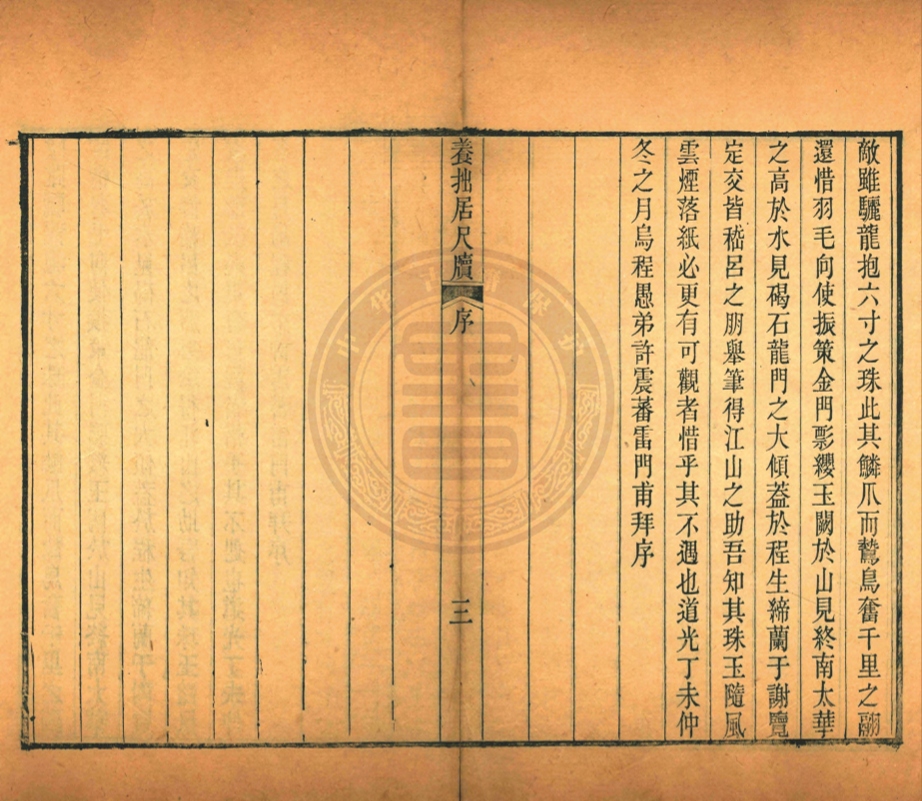 敵雖驪龍抱六寸之珠此其鱗爪而鷙鳥奮千里之翮
還惜羽毛向使振策金門影纓玉闕於山見終南太華
之高於水見碣石龍門之大傾葢於程生締蘭于謝覽
定交皆嵇呂之朋舉筆得江山之助吾知其珠玉隨風
雲煙落紙必更有可觀者惜乎其不遇也道光丁未仲
冬之月烏程愚弟許震蕃雷門甫拜序
養拙居尺牘
序
三